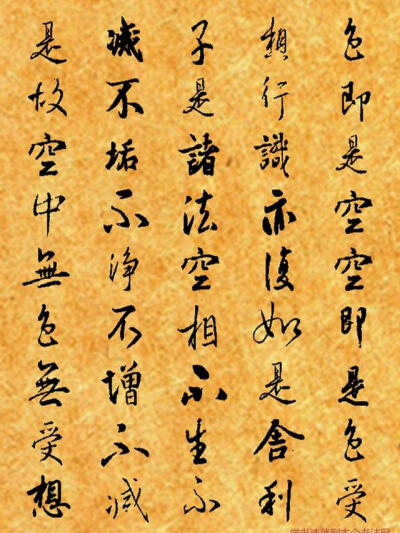 色即是空空即是色受
想行識亦復如是舍利
子是諸法空相不生不
滅不垢不淨不增不减
是故空中無色無受想